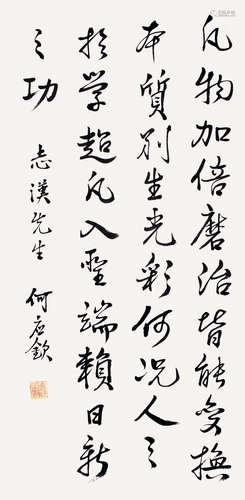 凡物加倍磨治皆能變換
本質別生光彩何況人之
於學超凡入聖端賴日新
之功
志漢先生 何應欽